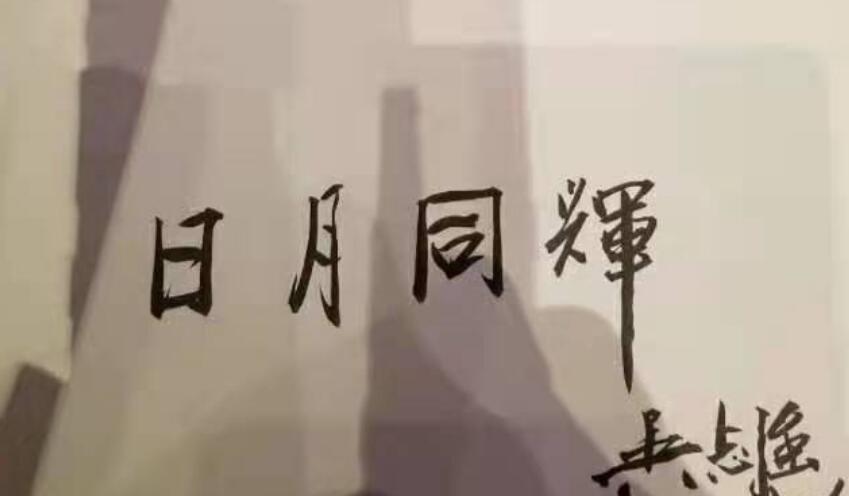 日月同輝